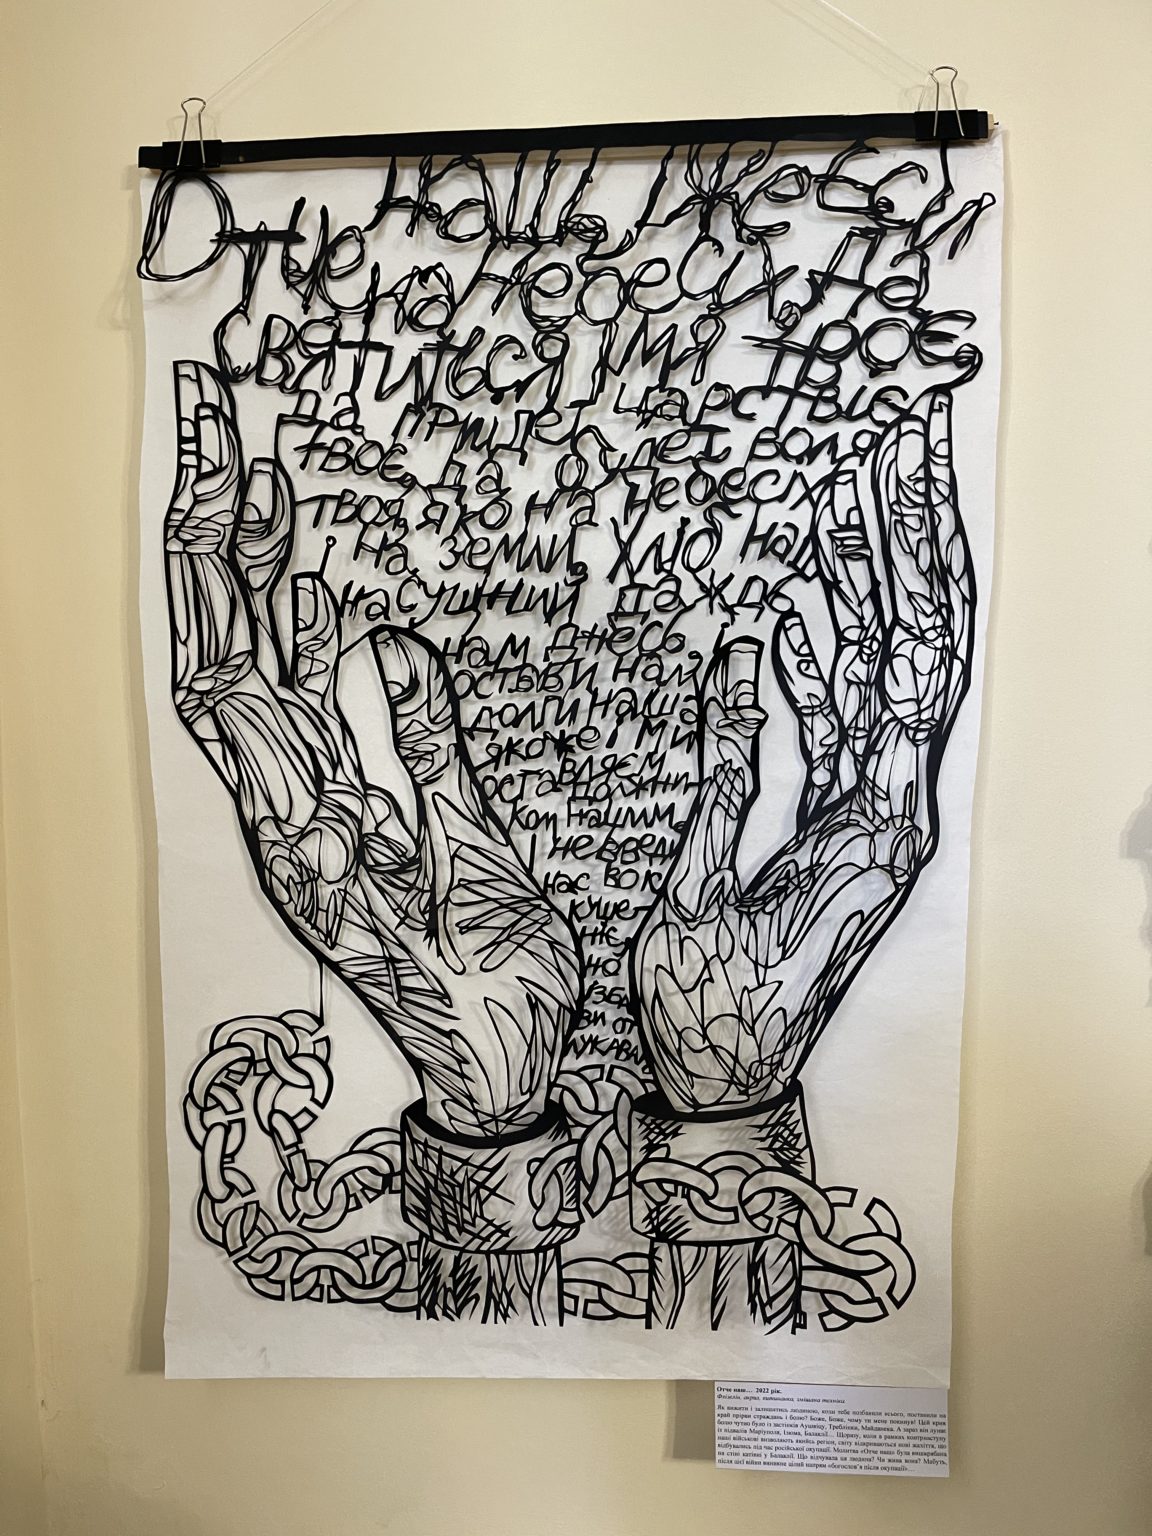 Отче наш, Іже єси
на небеси, да
святиться імя твоє,
да приидет царствіє
твоє, да будет воля
твоя, яко на небесх і
на земли, хліб наш
насущний даждь
нам днесь,
остави нам
долги наша
якоже і ми
оставляєм
должни-
ком нашим.
І не введи
нас во іс
куше-
ніє,
но
ізба
ви от
лукаваго
Отче наш… 2022 рік.
Флізелін, акрил, витинанка, змішана техніка
Як вижити і залишитись людиною, коли тебе позбавили всього, поставили на
край прірви страждань і болю? Боже, Боже, чому ти мене покинув! Цей крик
болю чутно було із застінків Аушвіцу, Треблінки, Майданека. А зараз він лунає
із підвалів Маріуполя, Ізюма, Балаклії… Щоразу, коли в рамках контрнаступу
наші військові визволяють якийсь регіон, світу відкриваються нові жахіття, що
відбувались під час російської окупації. Молитва «Отче наш» була вишкрябана
на стіні катівні у Балаклії. Що відчувала ця людина? Чи жива вона? Мабуть,
після цієї війни виникне цілий напрям «богослов'я після окупації»…